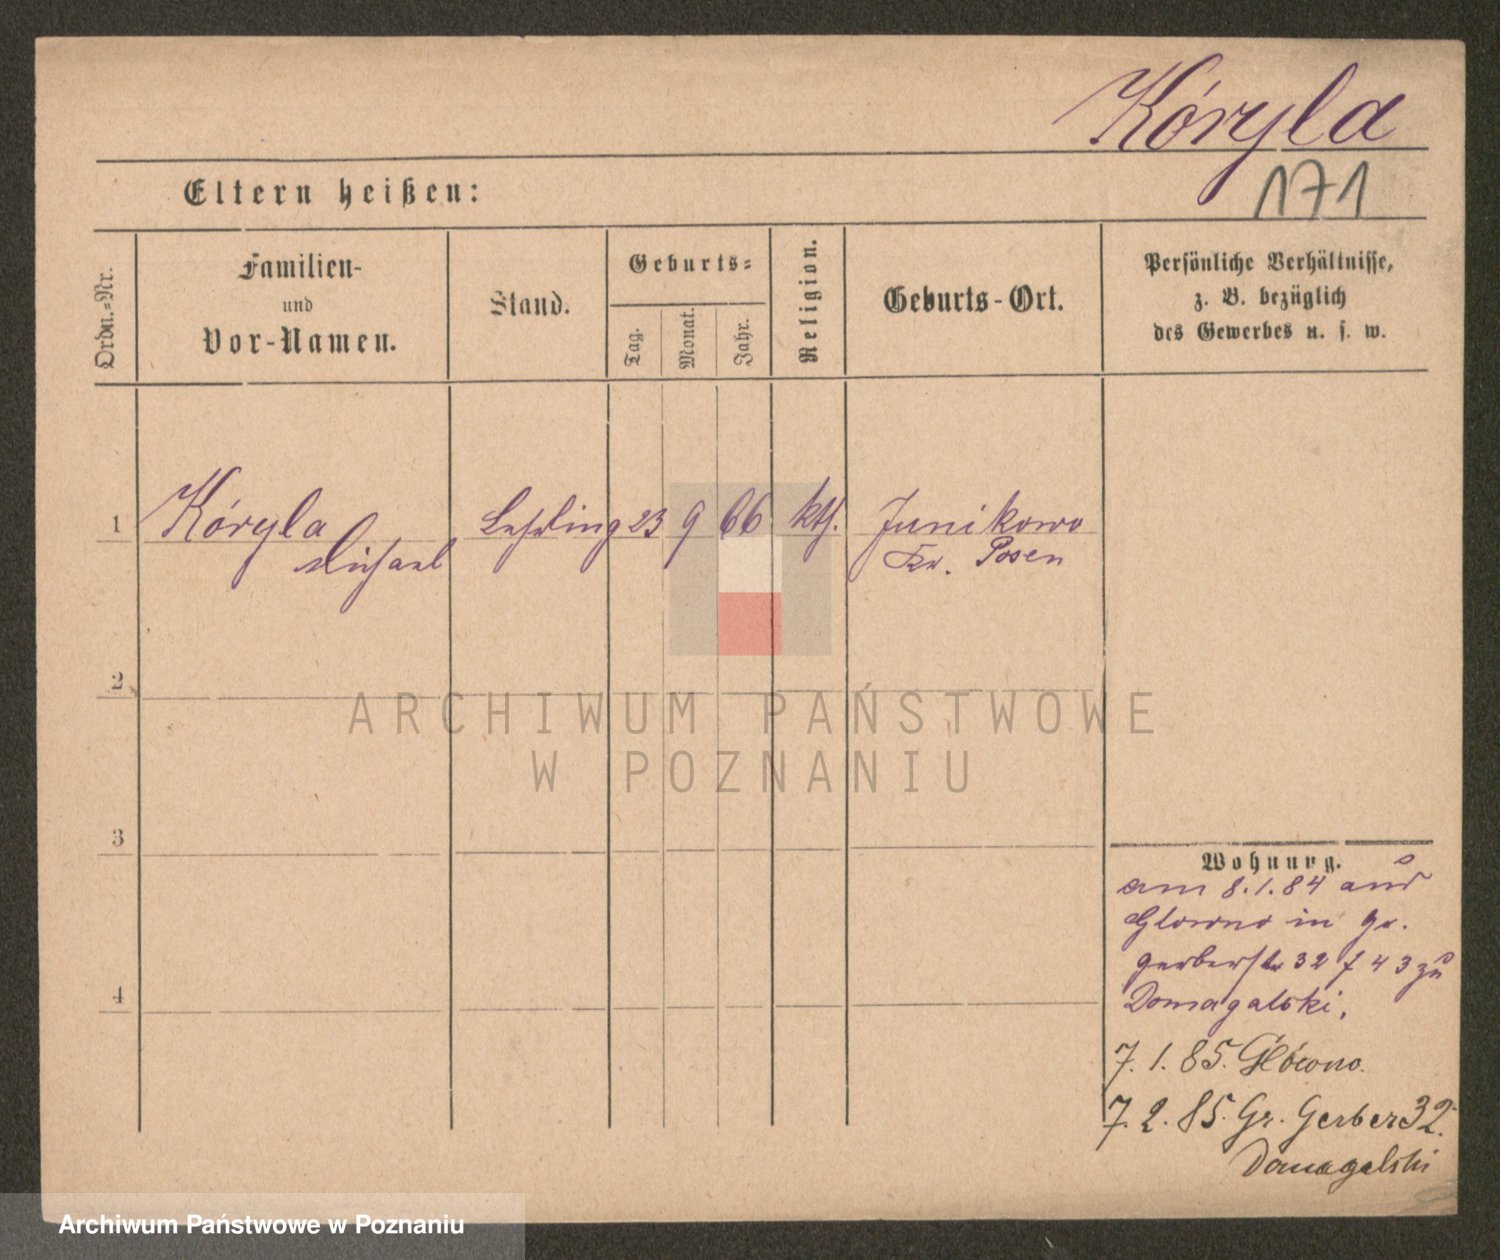 Kóryla
171
Eltern heißen:
Ordn.-Nr.
Familien-
und
Vor-Namen.
Stand.
Geburts-
Tag.
Monat.
Jahr.
Religion.
Geburts-Ort.
Persönliche Verhältnisse,
z. B. bezüglich
des Gewerbes u. s. w.
1 Kóryla Lehrling 23 9 66 kth. Junikowo
Michael Kr. Posen
2
ARCHIWUM PAŃSTWOWE
W POZNANIU
3
Wohnung.
am 8.1.84 aus
Glowno in Gr.
Gerberstr 32 f 43 zu
4
Domagalski.
7.1.85. Głowno.
7.2.85. Gr. Gerber 32.
Domagalski
Archiwum Państwowe w Poznaniu